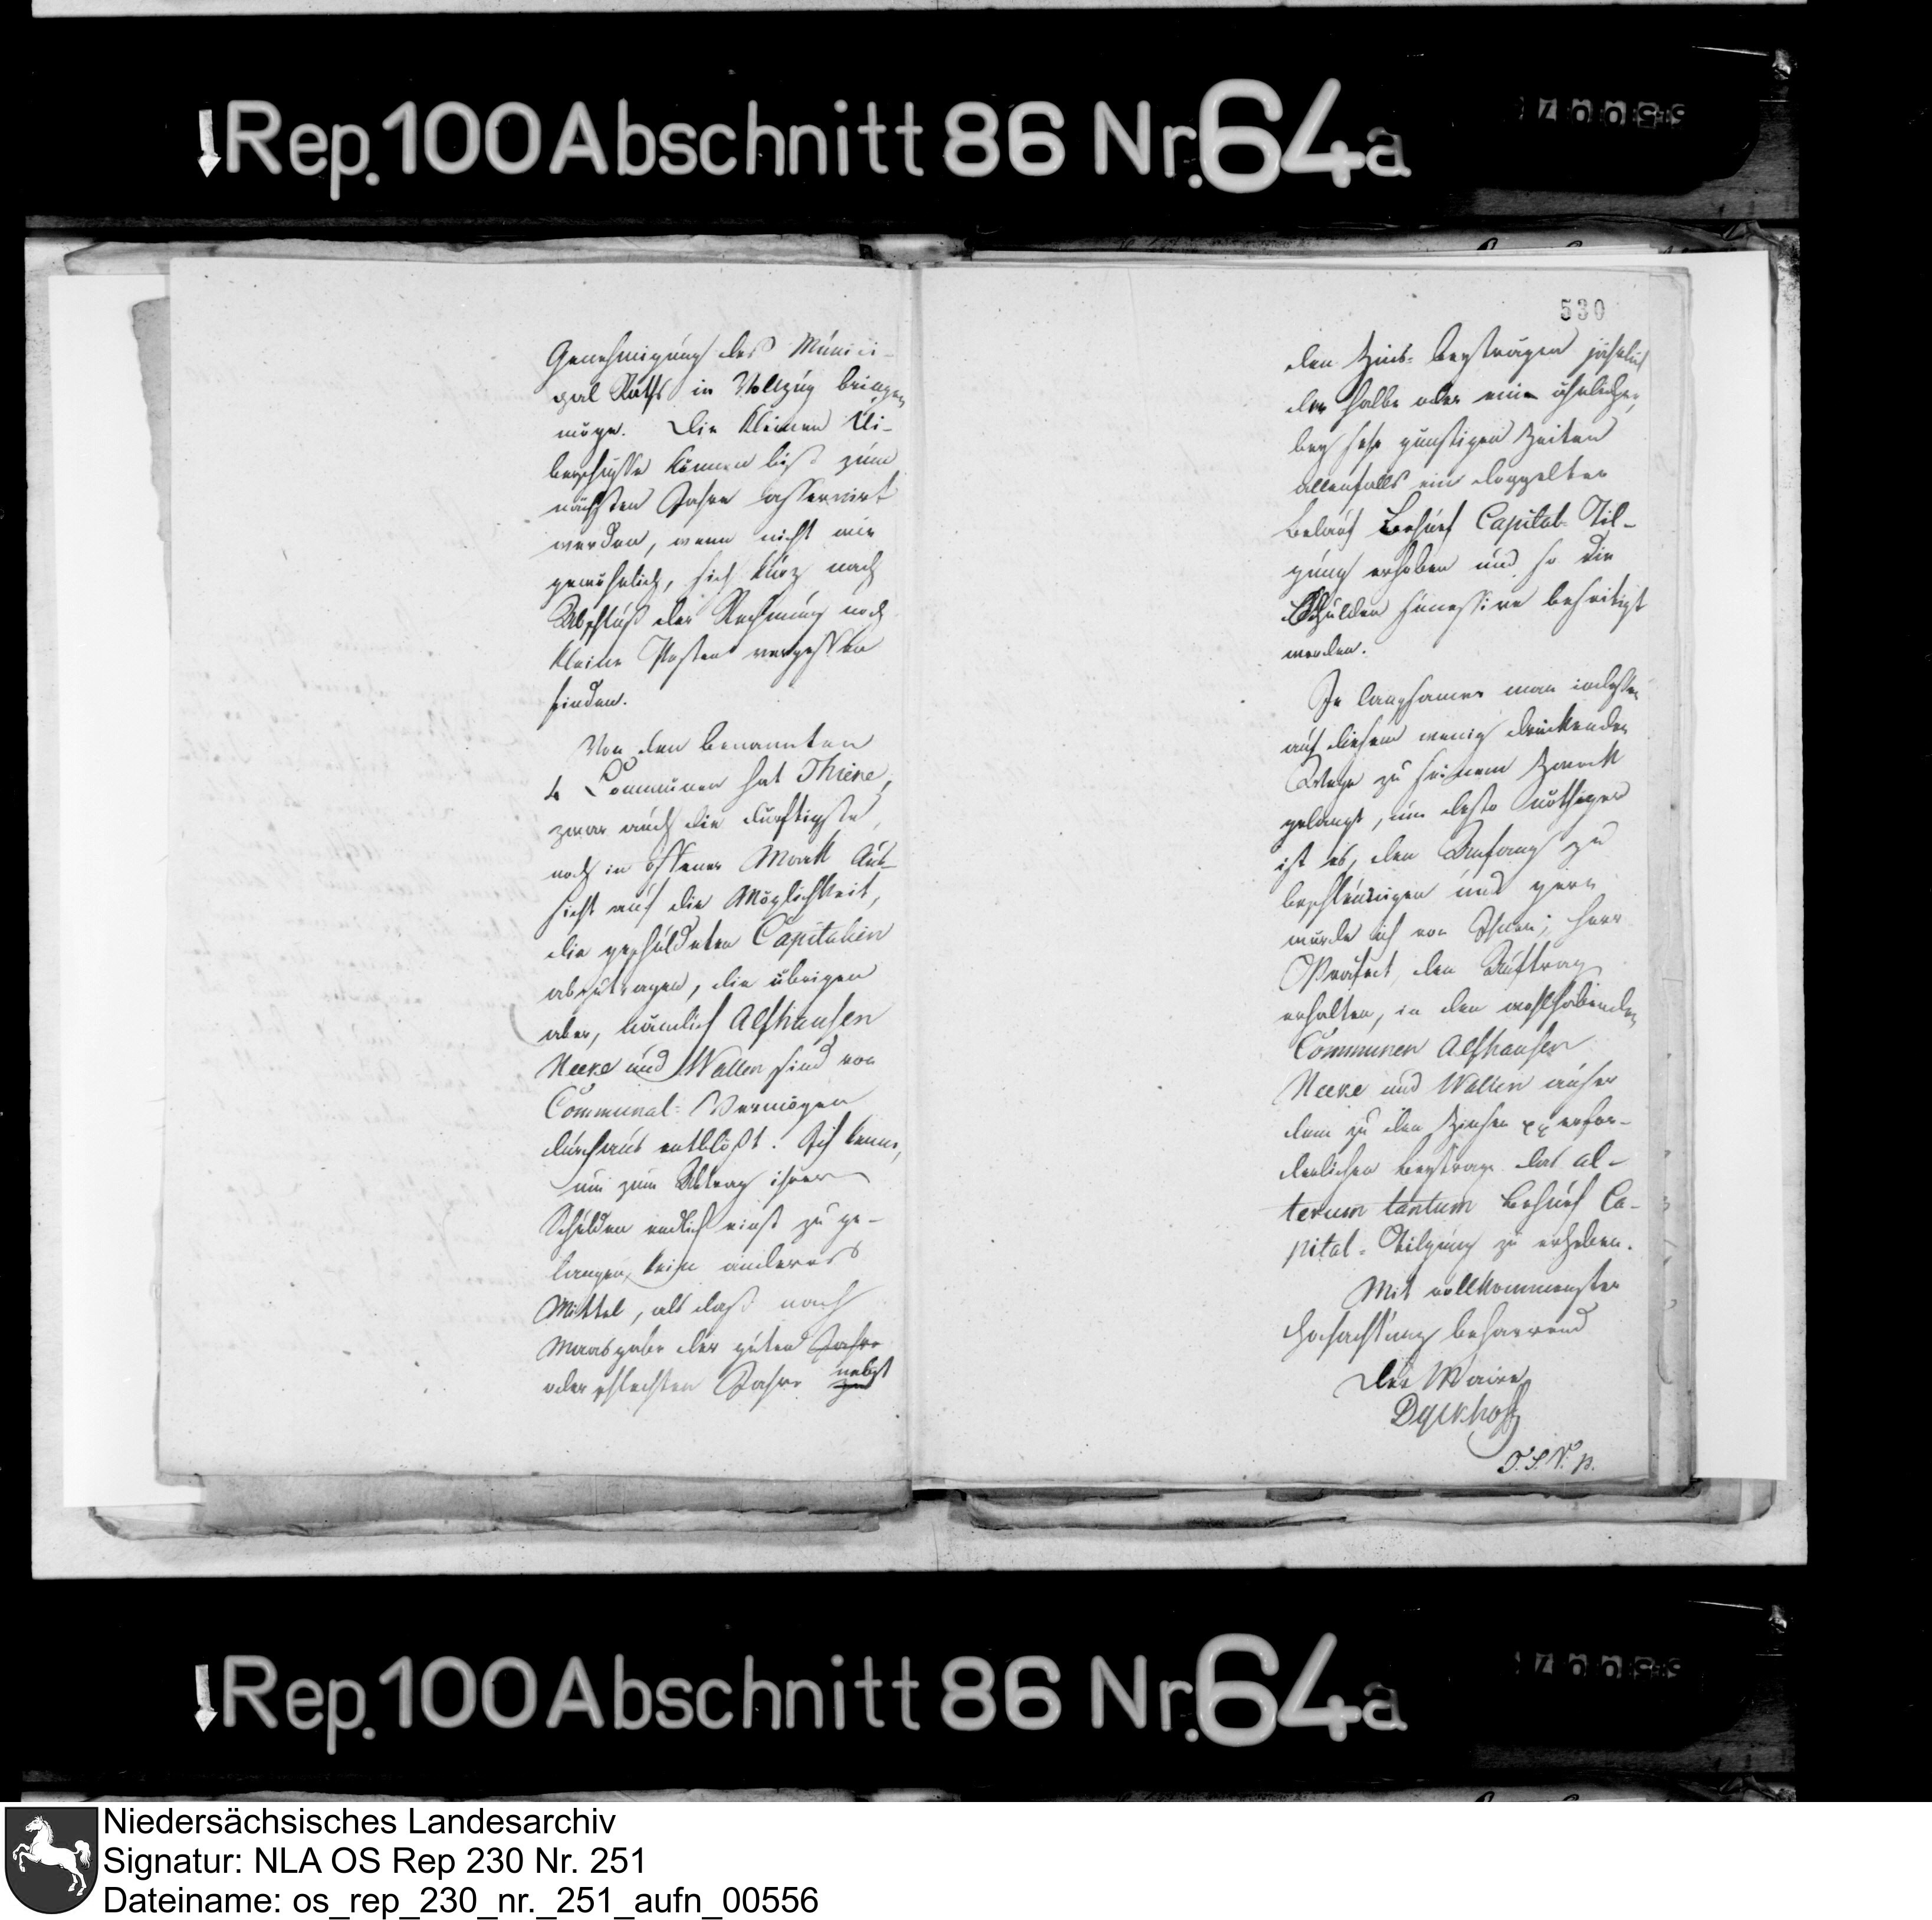 Rep. 100 Abschnitt 86 Nr. 64a
Genehmigung des Munici-
pal Raths in Vollzug bringen
möge. Die kleinen Ui-
berschüsse können biß zum
nächsten Jahre asservirt
werden, wenn nicht wie
gewöhnlich, sich kurz nach
Abschluß der Rechnung noch
kleine Posten vergessen
finden.
Von den benannten
4 Communen hat Thiene,
zwar auch die dürftigste,
noch in offener Mark Aus-
sicht auf die Möglichkeit,
die geschuldeten Capitalien
abzutragen, die übrigen
aber, nämlich Alfhausen
Heeke und Wallen sind von
Communal-Vermögen
durchaus entblößt. Ich kenne,
um zum Abtrag ihrer
Schulden endlich einst zu ge-
langen, kein anderes
Mittel, als daß nach
Maasgabe der guten Jahre
oder schlechten Jahre nebst
530
den Zins-beyträgen jährlich
der halbe oder eine ähnliche,
bey sehr günstigen Zeiten
allenfalls ein doppelter
Belauf Behuf Capital-Til-
gung erhoben und so die
Schulden successive beseitigt
werden.
Je langsamer man indessen
auf diesem wenig drückenden
Wege zu seinem Zweck
gelangt, um desto nöthiger
ist es, den Anfang zu
beschleunigen und gern
würde ich von Ihnen, Herr
Präfect, den Auftrag
erhalten, in den wohlhabenden
Communen Alfhausen
Heeke und Wallen außer
dem zu den Zinsen erfor-
derlichen Beytrage das al-
terum tantum Behuf Ca-
pital-Tilgung zu erheben.
Mit vollkommenster
Hochachtung beharrend
Der Maire
Dyckhoff
T. S. V. p.
Rep. 100 Abschnitt 86 Nr. 64a
Niedersächsisches Landesarchiv
Signatur: NLA OS Rep 230 Nr. 251
Dateiname: os_rep_230_nr._251_aufn_00556